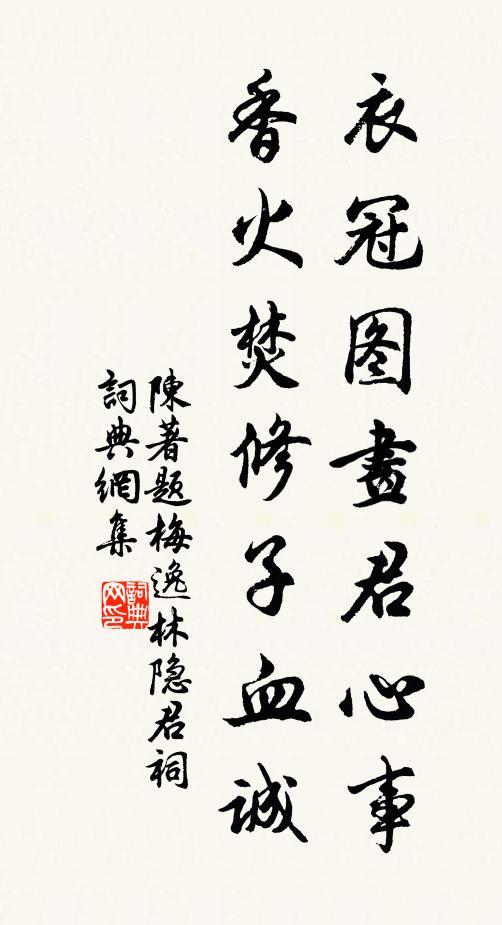 衣冠图畫君心事
香火焚修子血誠
陳著題梅逸林隐君祠
詞典網集
詞典网印